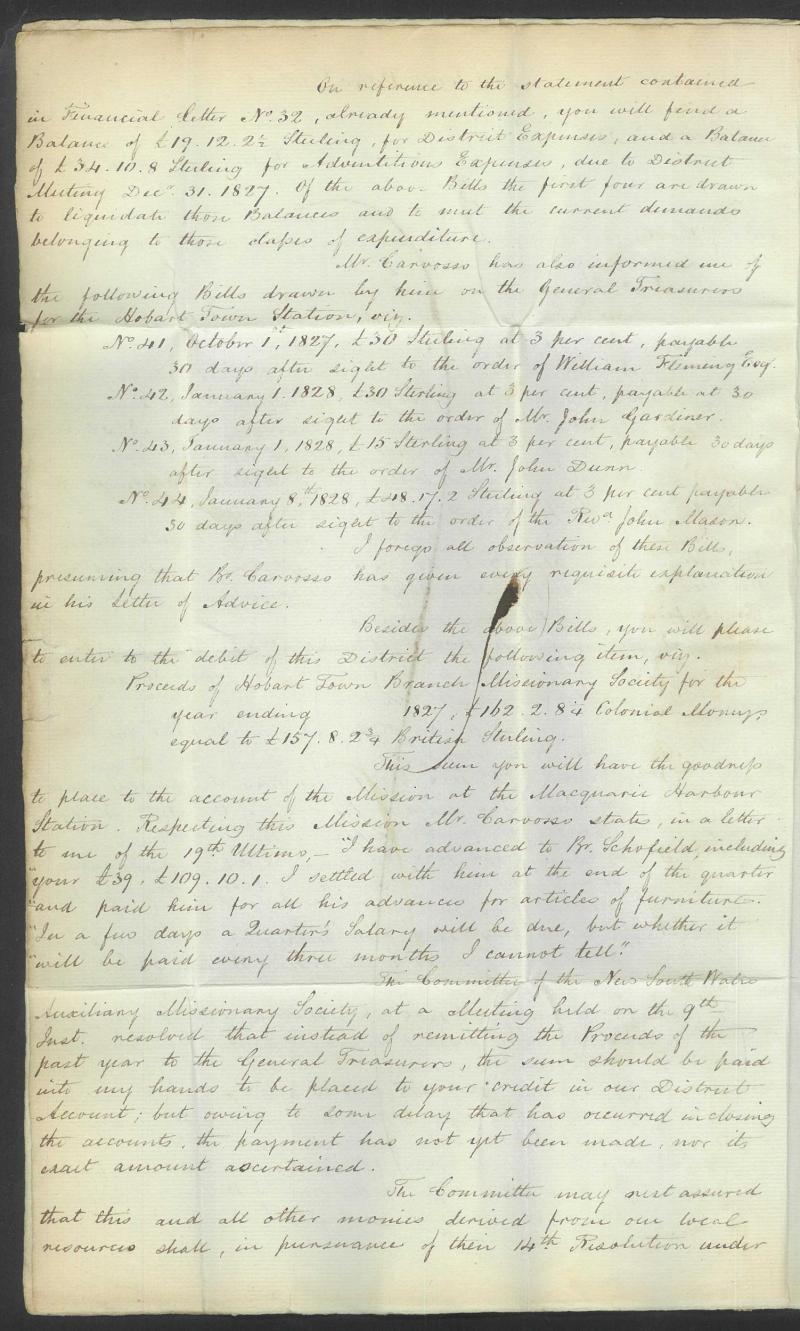 On reference to the statement contained
in Financial Letter No. 32, already mentioned, you will find a
Balance of £19.12.2½ Sterling, for District Expenses, and a Balance
of £34.10.8 Sterling for Adventitious Expenses, due to District
Meeting Decr. 31. 1827. Of the above Bills the first four are drawn
to liquidate those Balances and to meet the current demands
belonging to those classes of expenditure.
Mr. Carvosso has also informed me of
the following Bills drawn by him on the General Treasurers
for the Hobart Town Station, viz.
No. 41, October 1st, 1827, £30 Sterling at 3 per cent, payable
30 days after sight to the order of William Fleming Esq.
No. 42, January 1. 1828, £30 Sterling at 3 per cent, payable at 30
days after sight to the order of Mr. John Gardiner.
No. 43, January 1, 1828, £15 Sterling at 3 per cent, payable 30 days
after sight to the order of Mr. John Dunn.
No. 44, January 8th, 1828, £48.17.2 Sterling at 3 per cent payable
30 days after sight to the order of the Revd. John Mason.
I forego all observation of these Bills,
presuming that Br. Carvosso has given every requisite explanation
in his Letter of Advice.
Besides the above Bills, you will please
to enter to the debit of this District the following item, viz.
Proceeds of Hobart Town Branch Missionary Society for the
year ending 1827, £162.2.8¼ Colonial Monies,
equal to £157.8.2¾ British Sterling.
This sum you will have the goodness
to place to the account of the Mission at the Macquarie Harbour
Station. Respecting this Mission Mr. Carvosso states, in a letter
to me of the 19th Ultimo, – "I have advanced to Br. Schofield, including
"your £39, £109.10.1. I settled with him at the end of the quarter
"and paid him for all his advances for articles of furniture.
"In a few days a Quarter's Salary will be due, but whether it
"will be paid every three months I cannot tell."
The Committee of the New South Wales
Auxiliary Missionary Society, at a Meeting held on the 9th
Inst. resolved that instead of remitting the Proceeds of the
past year to the General Treasurers, the sum should be paid
into my hands to be placed to your credit in our District
Account; but owing to some delay that has occurred in closing
the accounts, the payment has not yet been made, nor its
exact amount ascertained.
The Committee may rest assured
that this and all other monies derived from our local
resources shall, in pursuance of their 14th Resolution under